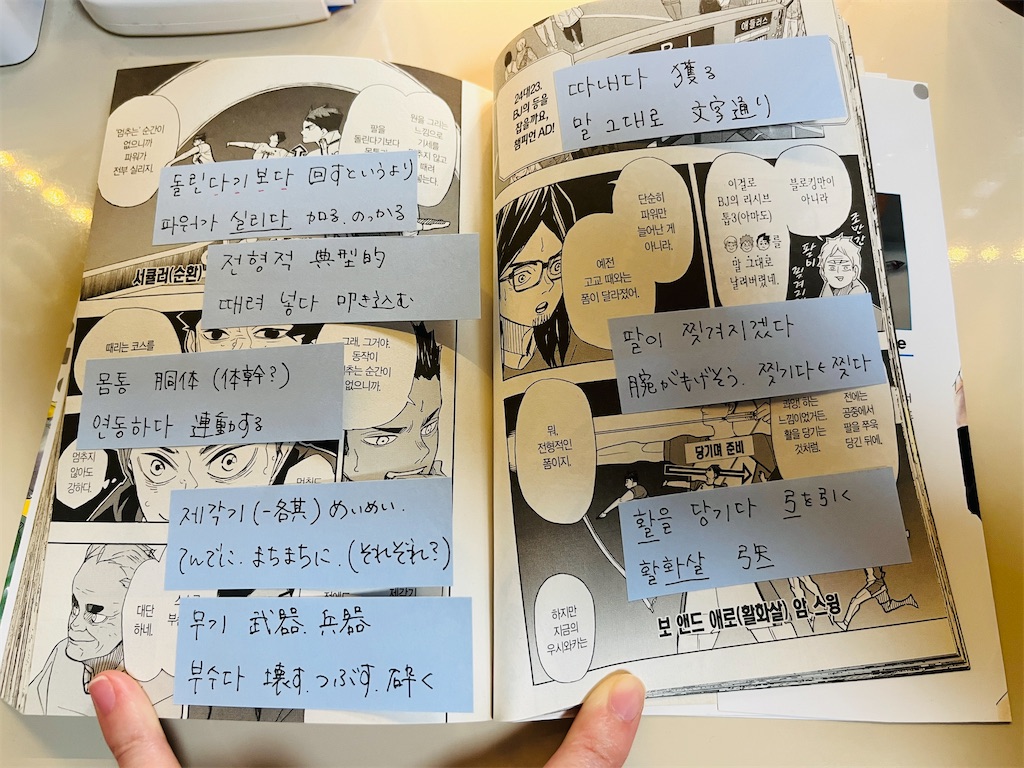 '멈추는' 순간이
없으니까
파워가
전부 실리지.
팔을
돌린다기보다
원을 그리는
느낌으로
기세를
않고
때려
돌린다기보다 回すというより
파워가 실리다 加る、のっかる
서클러(순환)
전형적 典型的
때려 넣다 叩き込む
때리는 코스를
그래, 그거야.
동작이
순간이
없으니까.
몸통 胴体 (体幹?)
연동하다 連動する
멈추지
않아도
강하다.
제각기 (-各其) めいめい.
てんでに. まちまちに. (それぞれ?)
제각기
대단
하네.
무기 武器、兵器
부수다 壊す、つぶす、砕く
애들러스
24대23.
BJ의 등을
잡을까요,
챔피언 AD!
따내다 獲る
말 그대로 文字通り
단순히
파워만
늘어난 게
아니라.
예전
고교 때와는
폼이 달라졌어.
이걸로
BJ의 리시브
톱3(아마도)
를
말 그대로
날려버렸네.
블로킹만이
아니라
팔이 찢겨지겠다
腕がもげそう. 찢기다 ← 찢다
뭐,
전형적인
폼이지.
하는
느낌이었거든.
활을 당기는
것처럼.
전에는
공중에서
팔을 쭈욱
당긴 뒤에.
당기며 준비
활을 당기다 弓を引く
활화살 弓矢
보 앤드 애로(활화살) 암 스윙
하지만
지금의
우시와카는